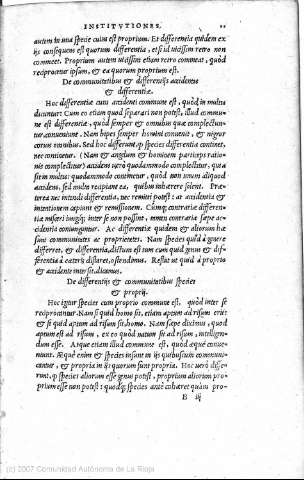 INSTITVTIONES.
autem in una specie cuius est proprium. Et differentia quidem ex
ijs consequens est quorum differentia, etsi ad uicissim retro non
commeet. Proprium autem uicissim etiam retro commeat, quòd
reciprocetur ipsum, & ea quorum proprium est.
De communitatibus & differentijs accidentis
& differentiæ.
Hoc differentiæ cum accidenti commune est, quòd in multis
dicuntur. Cum eo etiam quod separari non potest, illud commune
est differentiæ, quòd semper & omnibus quæ complectuntur,
conueniunt. Nam bipes semper homini conuenit, & nigror
coruis omnibus. Sed hoc differunt, q̃ species differentia continet,
nec continetur. (Nam & angelum & hominem particeps rationis
complectitur) accidens uerò quodammodo complectitur, quia
sit in multis: quodammodo continetur, quòd non unum aliquod
accidens, sed multa recipiant ea, quibus inhærere solent. Præterea
nec intendi differentia, nec remitti potest: at accidentia &
intentionem capiunt & remissionem. Cumq; contrariæ differentiæ
misceri iungiq; inter se non possint, tamen contraria sæpe accidentia
coniunguntur. Ac differentiæ quidem & aliorum hæ
sunt communitates ac proprietates. Nam species quid à genere
differret, & differentia, dictum est tum cum quid genus & differentia
à cæteris distaret, ostendimus. Restat ut quid à proprio
& accidente intersit, dicamus.
De differentijs & communitatibus speciei
& proprij.
Hoc igitur speciei cum proprio commune est, quòd inter se
reciprocantur. Nam si quid homo sit, etiam aptum ad risum erit:
& si quid aptum ad risum sit, homo. Nam sæpe diximus, quod
aptum est ad risum, ex eo quòd natum sit ad risum, intelligendum
esse. Atque etiam illud commune est, quod æquè conueniunt.
Æquè enim & species insunt in ijs quibuscum communicantur,
& propria in ijs quorum sunt propria. Hoc uerò differunt,
q̃ species aliorum esse genus potest, proprium aliorum proprium
esse non potest: quodq; species antè cohæret quàm pro-
B iij
(c) 2007 Comunidad Autónoma de La Rioja